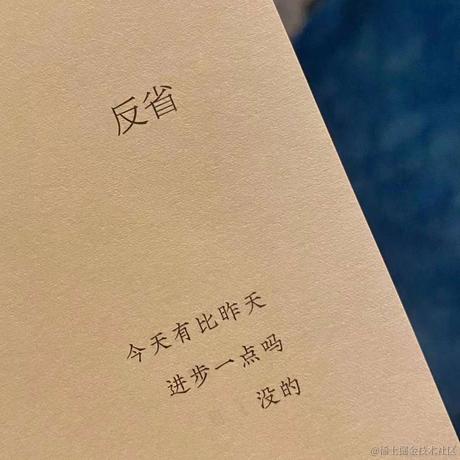 反省
今天有比昨天
进步一点吗
没的
@稀土掘金技术社区